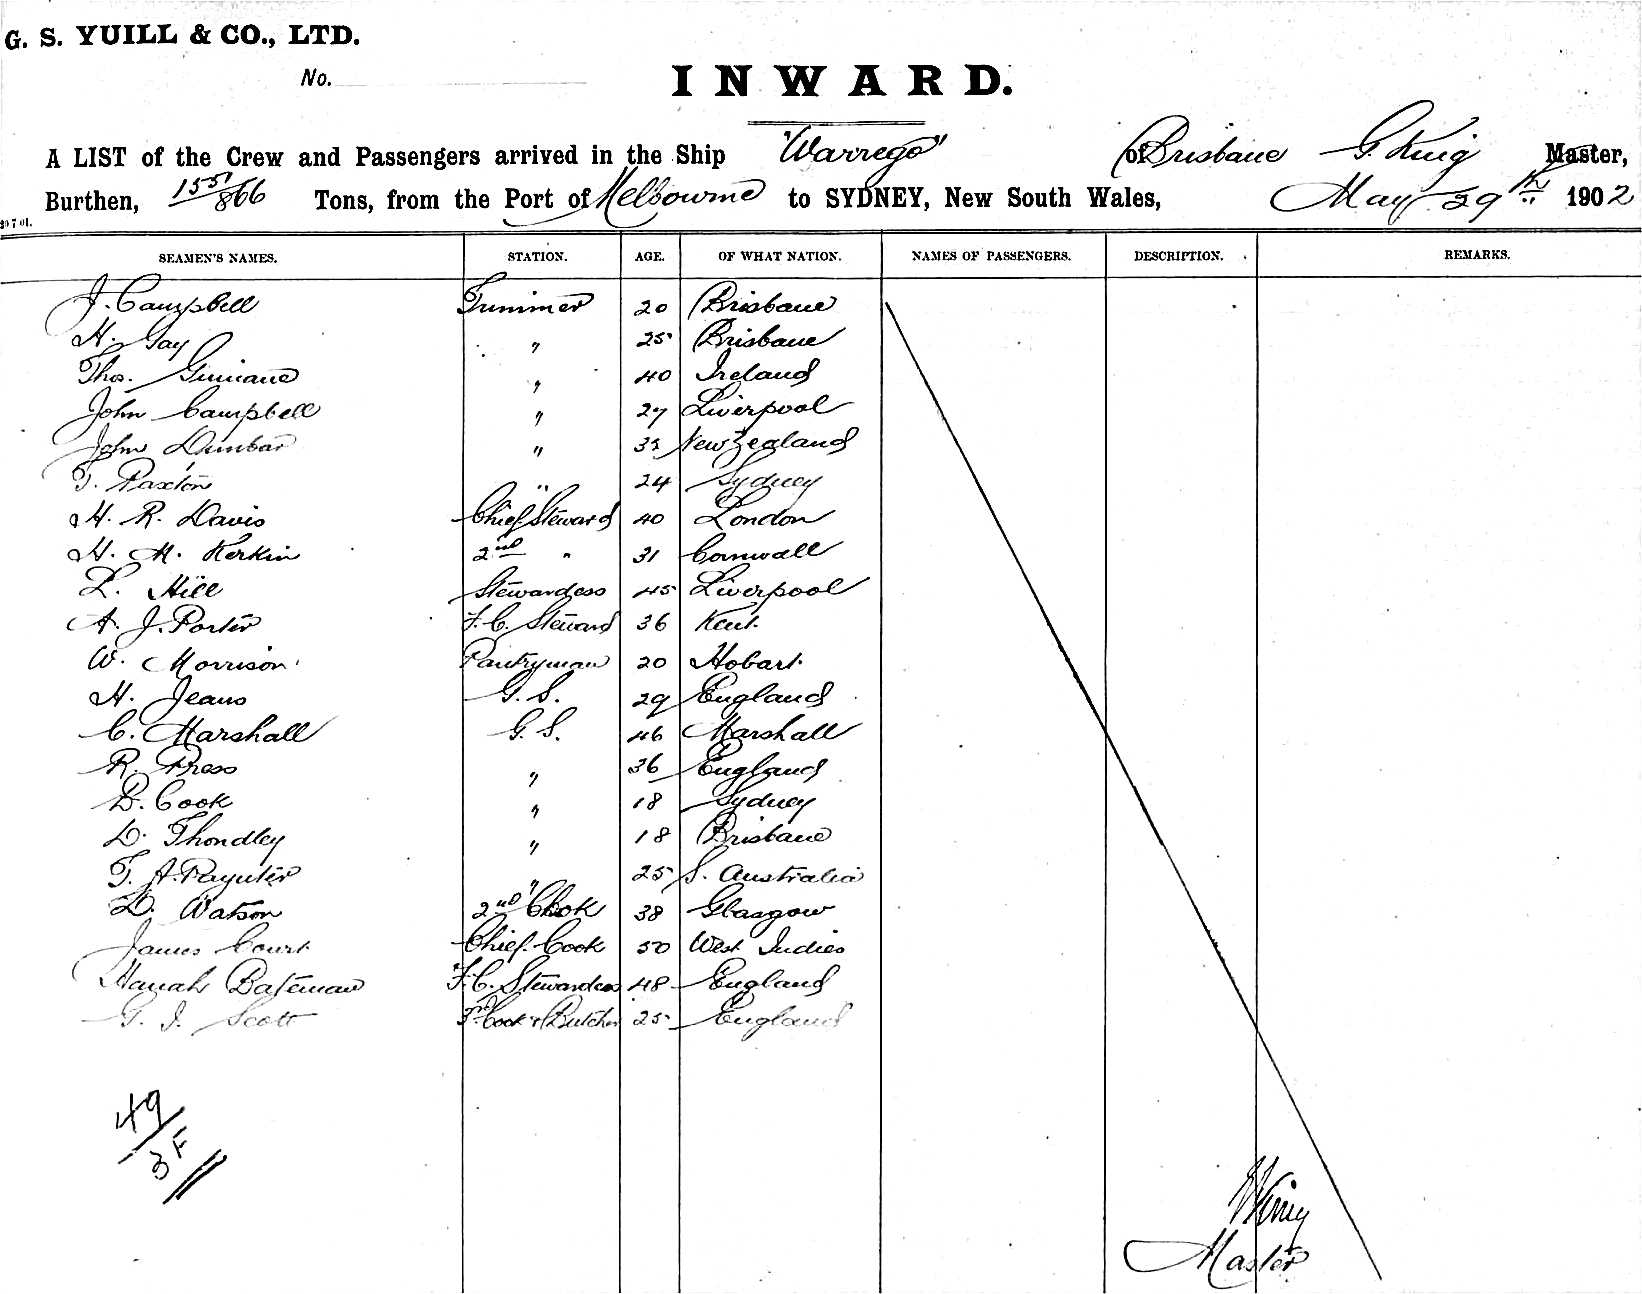 G. S. YUILL & CO., LTD.
No.
INWARD.
A LIST of the Crew and Passengers arrived in the Ship "Warrego" of Brisbane G. King Master,
Burthen, 1551/866 Tons, from the Port of Melbourne to SYDNEY, New South Wales, May 29th 1902
SEAMEN'S NAMES. STATION. AGE. OF WHAT NATION. NAMES OF PASSENGERS. DESCRIPTION. REMARKS.
J. Campbell Trimmer 20 Brisbane
H. Gay " 25 Brisbane
Thos. " 40 Ireland
John Campbell " 27 Liverpool
John Dunbar " New Zealand
T. Paxton " 24 Sydney
H. R. Davis Chief Steward 40 London
H. M. Kerkin 2nd " 31 Cornwall
L. Hill Stewardess 45 Liverpool
A. J. Porter F.C. Steward 36 Kent
W. Morrison Pantryman 20 Hobart
H. Jeans G.S. 29 England
C. Marshall G.S. 46 Marshall
R. Press " 36 England
B. Cook " 18 Sydney
D. Thondley " 18 Brisbane
T. A. Paynter " 25 S. Australia
D. Watson 2nd Cook 38 Glasgow
James Court Chief Cook 50 West Indies
Hanah Bateman F.C. Stewardess 48 England
G. J. Scott Cook & Butcher 25 England
49
3F
King
Master